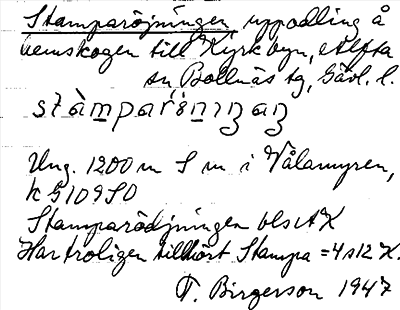 Stamparöjningen uppodling å
hemskogen till Kyrkbyn, Alfta
sn Bollnäs tg, Gävl. l.
stàmparö̀nıŋaŋ
Ung. 1200 m S m i Vålamyren,
k G109 SO
Stamparödjningen bls AK
Har troligen tillhört Stampa = 4 s12 K.
T. Birgerson 1947